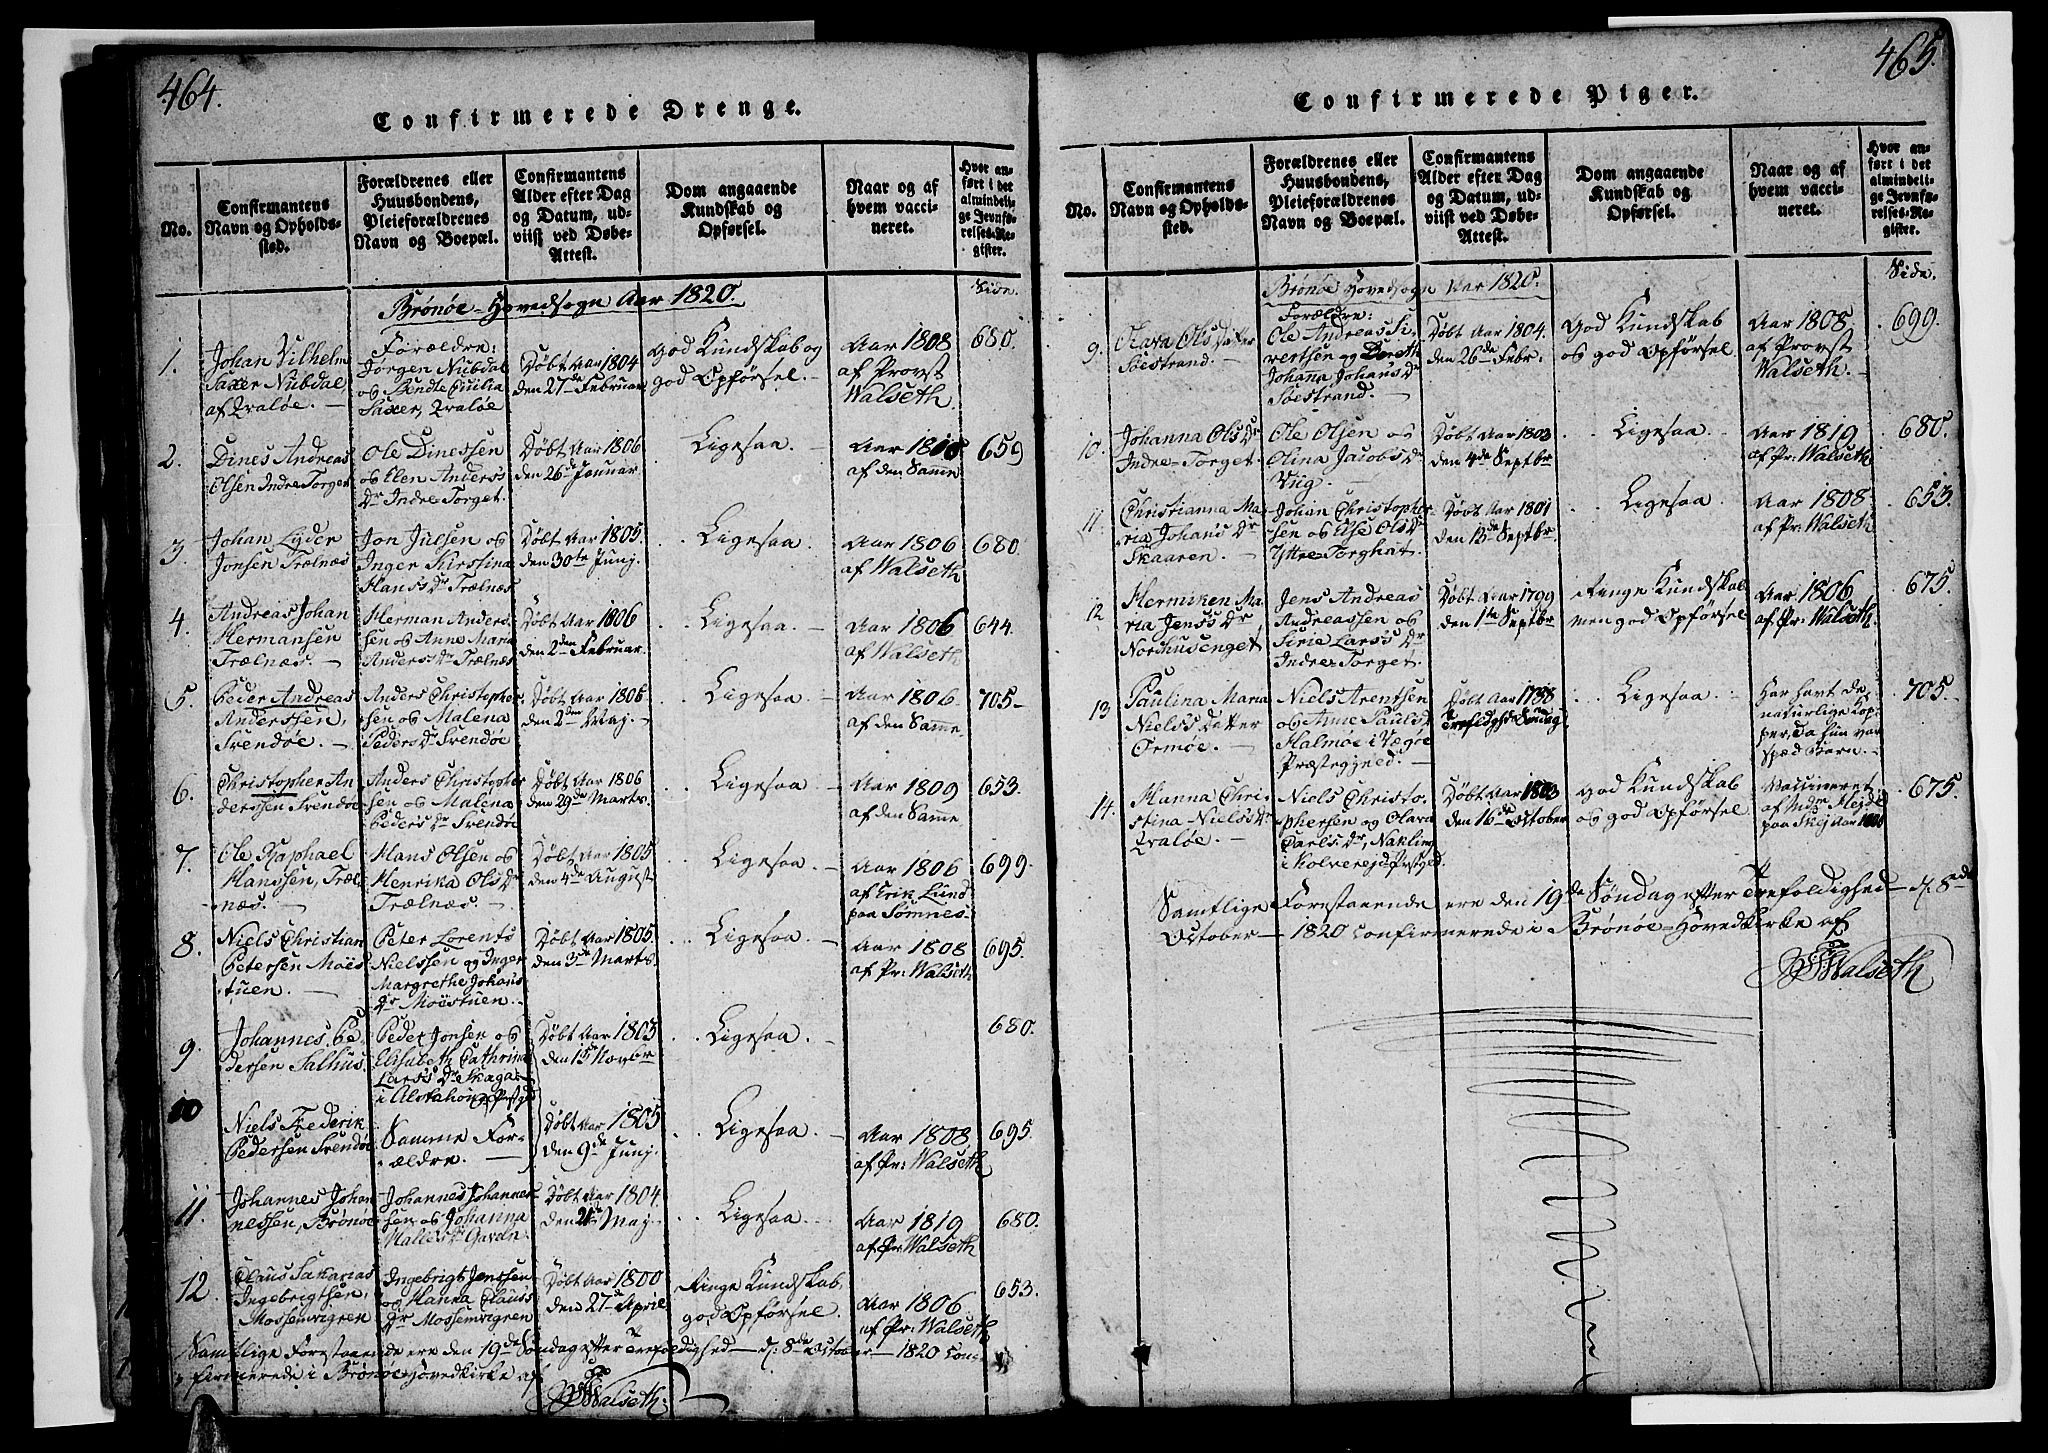 464.
Confirmerede Drenge.
No.
Confirmantens
Navn og Opholds-
sted.
Forældrenes eller
Huusbondens,
Pleieforældrenes
Navn og Boepæl.
Confirmantens
Alder efter Dag
og Datum, ud-
viist ved Døbe-
Attest.
Dom angaaende
Kundskab og
Opførsel.
Naar og af
hvem vacci-
neret.
Hvor an-
ført i det
almindeli-
ge Jevnfø-
relses-Re-
gister.
Brønøe Hovedsogn Aar 1820.
Side.
1.
Johan Vilhelm
Saxer Nubdal,
af Qvaløe. —
Forældre:
Jørgen Nubdal
og Bendte Cicilia
Saxer, Qvaløe
Døbt Aar 1804
den 27de Februar
God Kundskab og
god Opførsel. —
Aar 1808
af Provst
Walseth.
680.
2.
Dines Andreas
Olsen Indre Torget
Ole Dinessen
og Elen Anders
Dr Indre Torget.
Døbt Aar 1806
den 26de Januar.
Ligesaa.
Aar 1808
af den Samme
659
3.
Johan Lyder
Jonsen Trælnæs
Jon Julsen og
Inger Kirstina
Hans Dr Trælnæs
Døbt Aar 1805.
den 30te Junj.
Ligesaa.
Aar 1806
af Walseth
680.
4.
Andreas Johan
Hermansen
Trælnæs. —
Herman Anders-
sen og Anne Maria
Anders Dr Trælnæs
Døbt Aar 1806
den 2den Februar.
Ligesaa. —
Aar 1806
af Walseth
644.
5.
Peder Andreas
Anderssen,
Svendøe. —
Anders Christopher-
sen og Malena
Peders Dr Svendøe
Døbt Aar 1806
den 2den Maj. —
Ligesaa —
Aar 1806.
af den Samme
705 —
6.
Christopher An
derssen Svendøe
Anders Christopher
sen og Malena
Peders Dr Svendøe
Døbt Aar 1806
den 29de Marts.
Ligesaa. —
Aar 1809
af den Samme.
653.
7.
Ole Raphael
Hanssen, Træl-
næs. —
Hans Olsen og
Henrika Ols Dr
Trælnæs. —
Døbt Aar 1805
den 4de August
Ligesaa. —
Aar 1806
af Erik Lund
paa Sømnes.
699.
8.
Niels Christian
Petersen Moes
tuen. —
Peter Lorents
Nielssen og Inger
Margrethe Johans
Dr Moestuen. —
Døbt Aar 1805.
den 3de Marts.
Ligesaa. —
Aar 1808
af Pr: Walseth
695.
9.
Johannes Pe
dersen Salhus.
Peder Jonsen og
Elisabeth Cathrina
Lars Dr Skaga
i Alstahoug Prstgd
Døbt Aar 1803
den 15de Novbr
Ligesaa.
680.
10
Niels Frederik
Pedersen Svendøe
Samme For-
ældre. —
Døbt Aar 1805
den 9de Junj.
Ligesaa. —
Aar 1808.
af Pr: Walseth
695.
11.
Johannes Johan
nessen, Brønøe
Johannes Johannes-
sen og Johanna
Dr
Døbt Aar 1804.
den Maj.
Ligesaa.
Aar 1819
af Pr Walseth
680.
12.
Claus Sakarias
Ingebrigtsen,
Mossemvigren
Ingebrigt Jenssen
og Hanna Claus
Dr Mossemvigren
Døbt Aar 1800
den 27de April
Ringe Kundskab,
god Opførsel.
Aar 1806.
af Pr: Walseth
653.
Samtlige Forestaaende ere den 19de Søndag efter Trefoldighed — d: 8de October — 1820 Con-
firmerede i Brønøe Hovedkirke af
Walseth.
465.
Confirmerede Piger.
No.
Confirmantens
Navn og Opholds-
sted.
Forældrenes eller
Huusbondens,
Pleieforældrenes
Navn og Boepæl.
Confirmantens
Alder efter Dag
og Datum, ud-
viist ved Døbe-
Attest.
Dom angaaende
Kundskab og
Opførsel.
Naar og af
hvem vacci-
neret.
Hvor an-
ført i det
almindeli-
ge Jevnfø-
relses-Re-
gister.
Brønøe Hovedsogn Aar 1820.
Side.
9.
Olava Ols Datter
Søestrand. —
Forældre:
Ole Andreas Si-
vertsen og Doreth
Johanna Johans Dr
Søestrand. —
Døbt Aar 1804.
den 26de Febr.
God Kundskab
og god Opførsel.
Aar 1808
af Provst
Walseth. —
699.
10.
Johanna Ols Dr
Indre-Torget.
Ole Olsen og
Olina Jacobs Dr
Viig. —
Døbt Aar 1803
den 4de Septbr
Ligesaa.
Aar 1819
af Pr: Walseth
680.
11.
Christianna Ma-
ria Johans Dr
Skaaren. —
Johan Christopher-
sen og Else Ols Dr
Yttre Torghat.
Døbt Aar 1801
den 13de Septbr.
Ligesaa.
Aar 1808
af Pr: Walseth
653.
12
Hermiken Ma-
ria Jens Dr,
Norhusenget
Jens Andreas
Andreassen og
Sirie Lars Dr
Indre Torget.
Døbt Aar 1799
den 1te Septbr
Ringe Kundskab
men god Opførsel
Aar 1806
af Pr: Walseth.
675.
13
Paulina Maria
Niels Datter
Ormøe. —
Niels Arentsen
og Anne Pauls Dr
Halmøe i Vegøe
Præstegjeld. —
Døbt Aar 1788
Trefoldighed Søndag
Ligesaa —
Har havt de
naturlige Kop
per, da hun var
spæd Barn. —
705.
14.
Hanna Chri-
stina Niels Dr
Qvaløe. —
Niels Christo-
phersen og Olava
Carls Dr, Nakling
i Kolvereid Prstgd.
Døbt Aar 1803
den 16de October
God Kundskab
og god Opførsel
Vaccineret
af Indr. Hejde
paa Skej Aar
675.
Samtlige Forestaaende ere den 19de Søndag efter Trefoldighed — d: 8de
October — 1820 Confirmerede i Brønøe Hovedkirke af
Walseth